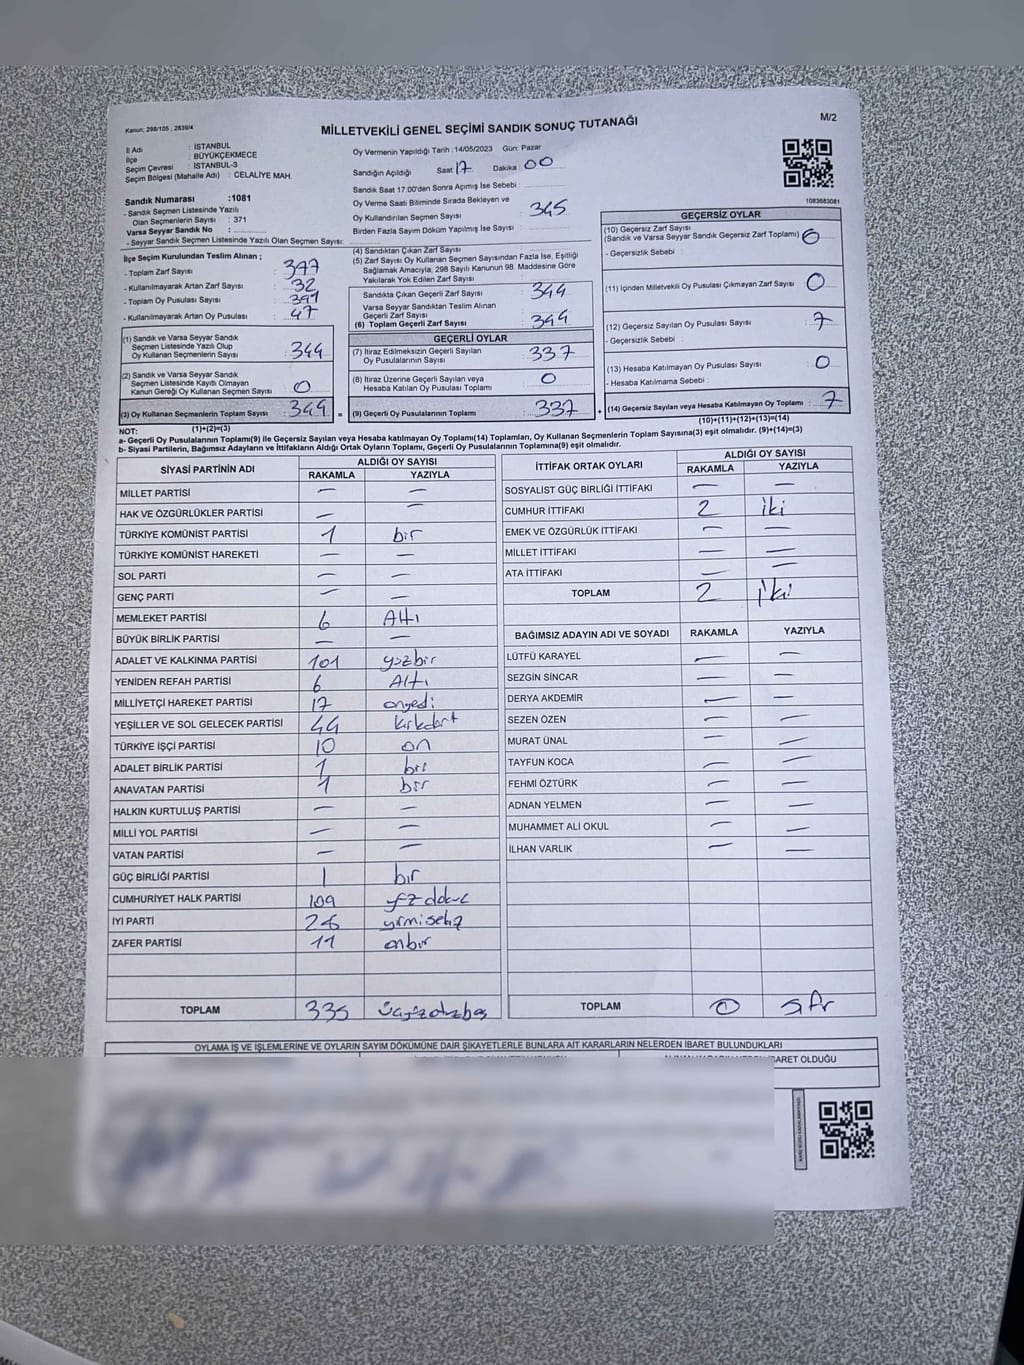 Kanun; 298/105 , 2839/4
MİLLETVEKİLİ GENEL SEÇİMİ SANDIK SONUÇ TUTANAĞI
M/2
İl Adı : İSTANBUL
İlçe : BÜYÜKÇEKMECE
Seçim Çevresi : İSTANBUL-3
Seçim Bölgesi (Mahalle Adı) : CELALİYE MAH.
Sandık Numarası :1081
- Sandık Seçmen Listesinde Yazılı
Olan Seçmenlerin Sayısı : 371
Varsa Seyyar Sandık No :
- Seyyar Sandık Seçmen Listesinde Yazılı Olan Seçmen Sayısı:
Oy Vermenin Yapıldığı Tarih : 14/05/2023 Gün: Pazar
Sandığın Açıldığı Saat 17 Dakika 00
Sandık Saat 17:00'den Sonra Açımış İse Sebebi :
Oy Verme Saati Bitiminde Sırada Bekleyen ve
Oy Kullandırılan Seçmen Sayısı : 345
Birden Fazla Sayım Döküm Yapılmış İse Sayısı :
1083683081
İlçe Seçim Kurulundan Teslim Alınan ;
- Toplam Zarf Sayısı :
- Kullanılmayarak Artan Zarf Sayısı : 32
- Toplam Oy Pusulası Sayısı : 391
- Kullanılmayarak Artan Oy Pusulası : 47
(1) Sandık ve Varsa Seyyar Sandık
Seçmen Listesinde Yazılı Olup
Oy Kullanan Seçmenlerin Sayısı : 344
(2) Sandık ve Varsa Seyyar Sandık
Seçmen Listesinde Kayıtlı Olmayan
Kanun Gereği Oy Kullanan Seçmen Sayısı : 0
(3) Oy Kullanan Seçmenlerin Toplam Sayısı : 344 =
(1)+(2)=(3)
(4) Sandıktan Çıkan Zarf Sayısı :
(5) Zarf Sayısı Oy Kullanan Seçmen Sayısından Fazla İse, Eşitliği
Sağlamak Amacıyla; 298 Sayılı Kanunun 98. Maddesine Göre
Yakılarak Yok Edilen Zarf Sayısı :
Sandıkta Çıkan Geçerli Zarf Sayısı : 344
Varsa Seyyar Sandıktan Teslim Alınan
Geçerli Zarf Sayısı :
(6) Toplam Geçerli Zarf Sayısı : 344
GEÇERLİ OYLAR
(7) İtiraz Edilmeksizin Geçerli Sayılan
Oy Pusulalarının Sayısı : 337
(8) İtiraz Üzerine Geçerli Sayılan veya
Hesaba Katılan Oy Pusulası Toplamı : 0
(9) Geçerli Oy Pusulalarının Toplamı : 337 +
GEÇERSİZ OYLAR
(10) Geçersiz Zarf Sayısı
(Sandık ve Varsa Seyyar Sandık Geçersiz Zarf Toplamı) : 0
- Geçersizlik Sebebi :
(11) İçinden Milletvekili Oy Pusulası Çıkmayan Zarf Sayısı : 0
(12) Geçersiz Sayılan Oy Pusulası Sayısı : 7
- Geçersizlik Sebebi :
(13) Hesaba Katılmayan Oy Pusulası Sayısı : 0
- Hesaba Katılmama Sebebi :
(14) Geçersiz Sayılan veya Hesaba Katılmayan Oy Toplamı : 7
(10)+(11)+(12)+(13)=(14)
NOT:
a- Geçerli Oy Pusulalarının Toplamı(9) ile Geçersiz Sayılan veya Hesaba katılmayan Oy Toplamı(14) Toplamları, Oy Kullanan Seçmenlerin Toplam Sayısına(3) eşit olmalıdır. (9)+(14)=(3)
b- Siyasi Partilerin, Bağımsız Adayların ve İttifakların Aldığı Oyların Toplamı, Geçerli Oy Pusulalarının Toplamına(9) eşit olmalıdır.
SİYASİ PARTİNİN ADI ALDIĞI OY SAYISI
RAKAMLA YAZIYLA
MİLLET PARTİSİ — —
HAK VE ÖZGÜRLÜKLER PARTİSİ — —
TÜRKİYE KOMÜNİST PARTİSİ 1 bir
TÜRKİYE KOMÜNİST HAREKETİ — —
SOL PARTİ — —
GENÇ PARTİ — —
MEMLEKET PARTİSİ 6 Altı
BÜYÜK BİRLİK PARTİSİ — —
ADALET VE KALKINMA PARTİSİ 101 yüzbir
YENİDEN REFAH PARTİSİ 6 Altı
MİLLİYETÇİ HAREKET PARTİSİ 17 onyedi
YEŞİLLER VE SOL GELECEK PARTİSİ 44 kırkdört
TÜRKİYE İŞÇİ PARTİSİ 10 on
ADALET BİRLİK PARTİSİ 1 bir
ANAVATAN PARTİSİ 1 bir
HALKIN KURTULUŞ PARTİSİ — —
MİLLİ YOL PARTİSİ — —
VATAN PARTİSİ — —
GÜÇ BİRLİĞİ PARTİSİ 1 bir
CUMHURİYET HALK PARTİSİ 109
İYİ PARTİ
ZAFER PARTİSİ 11 onbir
TOPLAM 335
İTTİFAK ORTAK OYLARI ALDIĞI OY SAYISI
RAKAMLA YAZIYLA
SOSYALİST GÜÇ BİRLİĞİ İTTİFAKI — —
CUMHUR İTTİFAKI 2 iki
EMEK VE ÖZGÜRLÜK İTTİFAKI — —
MİLLET İTTİFAKI — —
ATA İTTİFAKI — —
TOPLAM 2 iki
BAĞIMSIZ ADAYIN ADI VE SOYADI RAKAMLA YAZIYLA
LÜTFÜ KARAYEL — —
SEZGİN SİNCAR — —
DERYA AKDEMİR — —
SEZEN ÖZEN — —
MURAT ÜNAL — —
TAYFUN KOCA — —
FEHMİ ÖZTÜRK — —
ADNAN YELMEN — —
MUHAMMET ALİ OKUL — —
İLHAN VARLIK — —
TOPLAM 0 sıfır
OYLAMA İŞ VE İŞLEMLERİNE VE OYLARIN SAYIM DÖKÜMÜNE DAİR ŞİKAYETLERLE BUNLARA AİT KARARLARIN NELERDEN İBARET BULUNDUKLARI
İBARET OLDUĞU